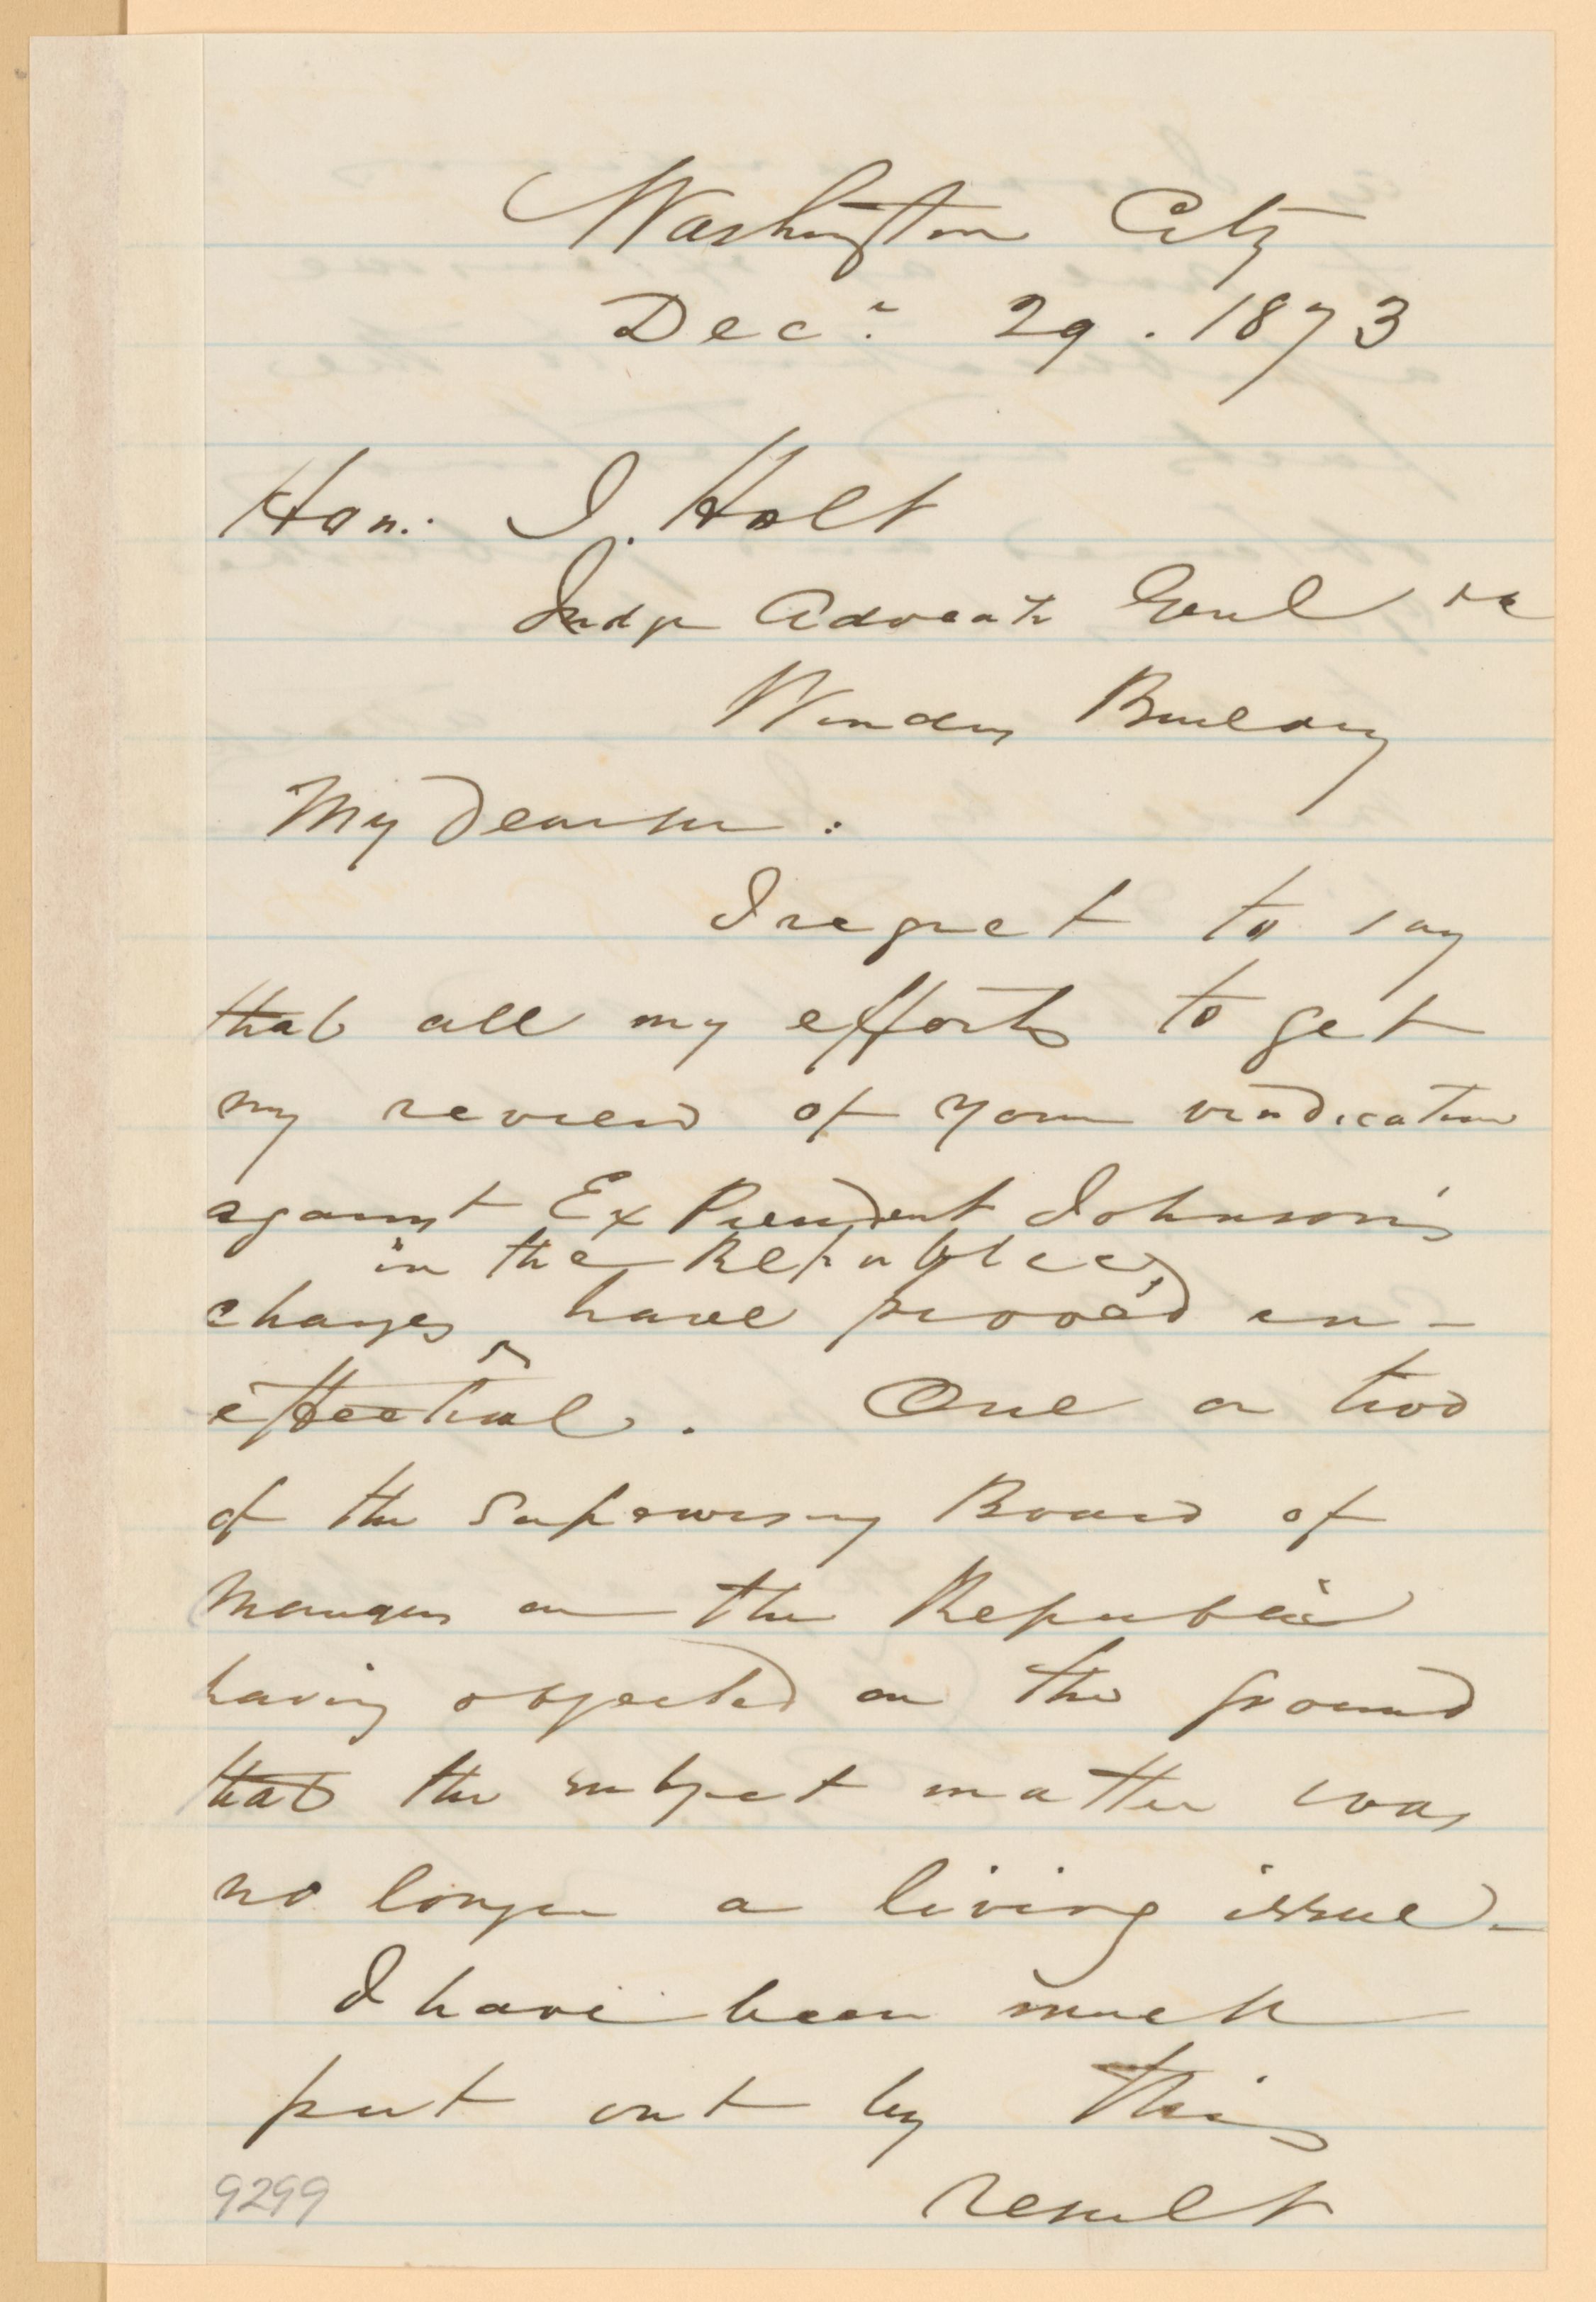 Washington City
Decr. 29. 1873
Hon: J. Holt
Judge Advocate Genl &c
Winders Building
My Dear sir :
I regret to say
that all my efforts to get
my review of your vindication
against Ex President Johnson's
in the Republic
charges ^ have prooved in-
effectual. One or two
of the Supervising Board of
Managers on the Republic
having objected on the ground
that the subject matter was
no longer a living issue -
I have been much
put out by this
result
9299